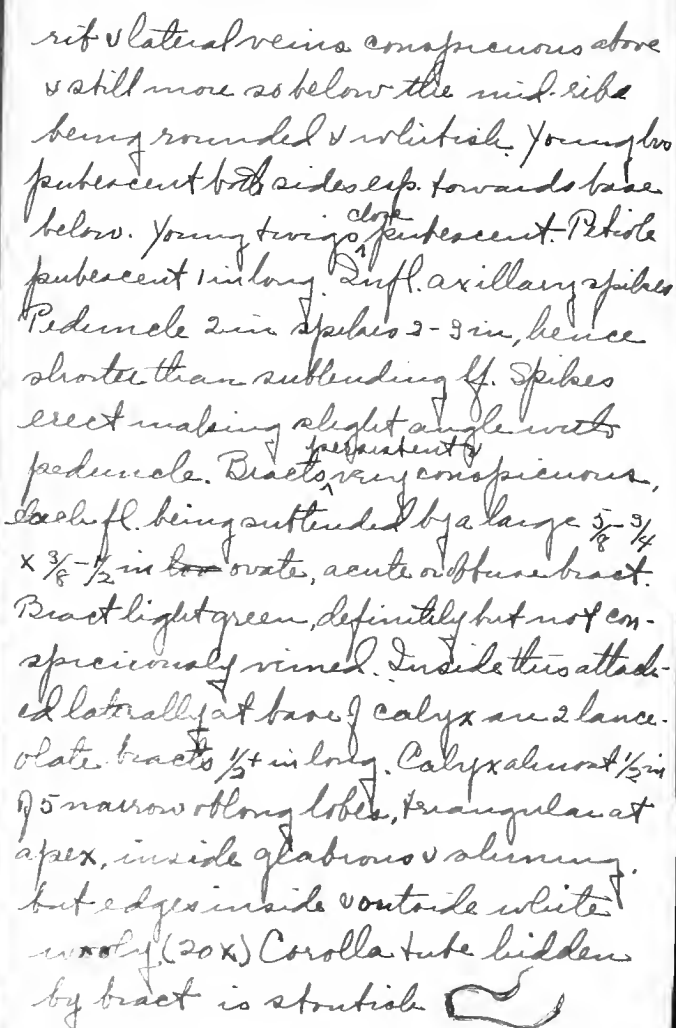 rib & lateral veins conspicuous above
& still more so below the mid-ribs
being rounded & whitish. Young lvs
pubescent both sides esp. towards base
below. Young twigs close pubescent. Petiole
pubescent 1 in long. Infl. axillary spikes
Peduncle 2 in spikes 2-3 in, hence
shorter than subtending lf. Spikes
erect making slight angle with
peduncle. Bracts persistent & very conspicuous,
each fl. being subtended by a large 5/8-3/4
x 3/8-1/2 in ovate, acute or obtuse bract.
Bract light green, definitely but not con-
spiciously veined. Inside this attach-
ed laterally at base of calyx are 2 lance-
olate bracts 1/2+ in long. Calyx almost 1/2 in
of 5 narrow oblong lobes, triangular at
apex, inside glabrous & shining.
but edges inside & outside white
wooly (20x) Corolla tube hidden
by bract is stoutish